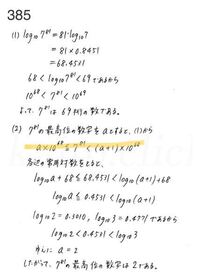 385
(1) log₁₀7⁸¹ = 81·log₁₀7
= 81×0.8451
= 68.4531
68 < log₁₀7⁸¹ < 69 であるから
10⁶⁸ < 7⁸¹ < 10⁶⁹
よって, 7⁸¹は 69桁の数である。
(2) 7⁸¹の最高位の数字をaとすると, (1)から
a×10⁶⁸ ≦ 7⁸¹ < (a+1)×10⁶⁸
各辺の常用対数をとると,
log₁₀a+68 ≦ 68.4531 < log₁₀(a+1)+68
log₁₀a ≦ 0.4531 < log₁₀(a+1)
log₁₀2 = 0.3010, log₁₀3 = 0.4771 であるから
log₁₀2 < 0.4531 < log₁₀3
ゆえに a = 2
したがって, 7⁸¹の最高位の数字は2である。